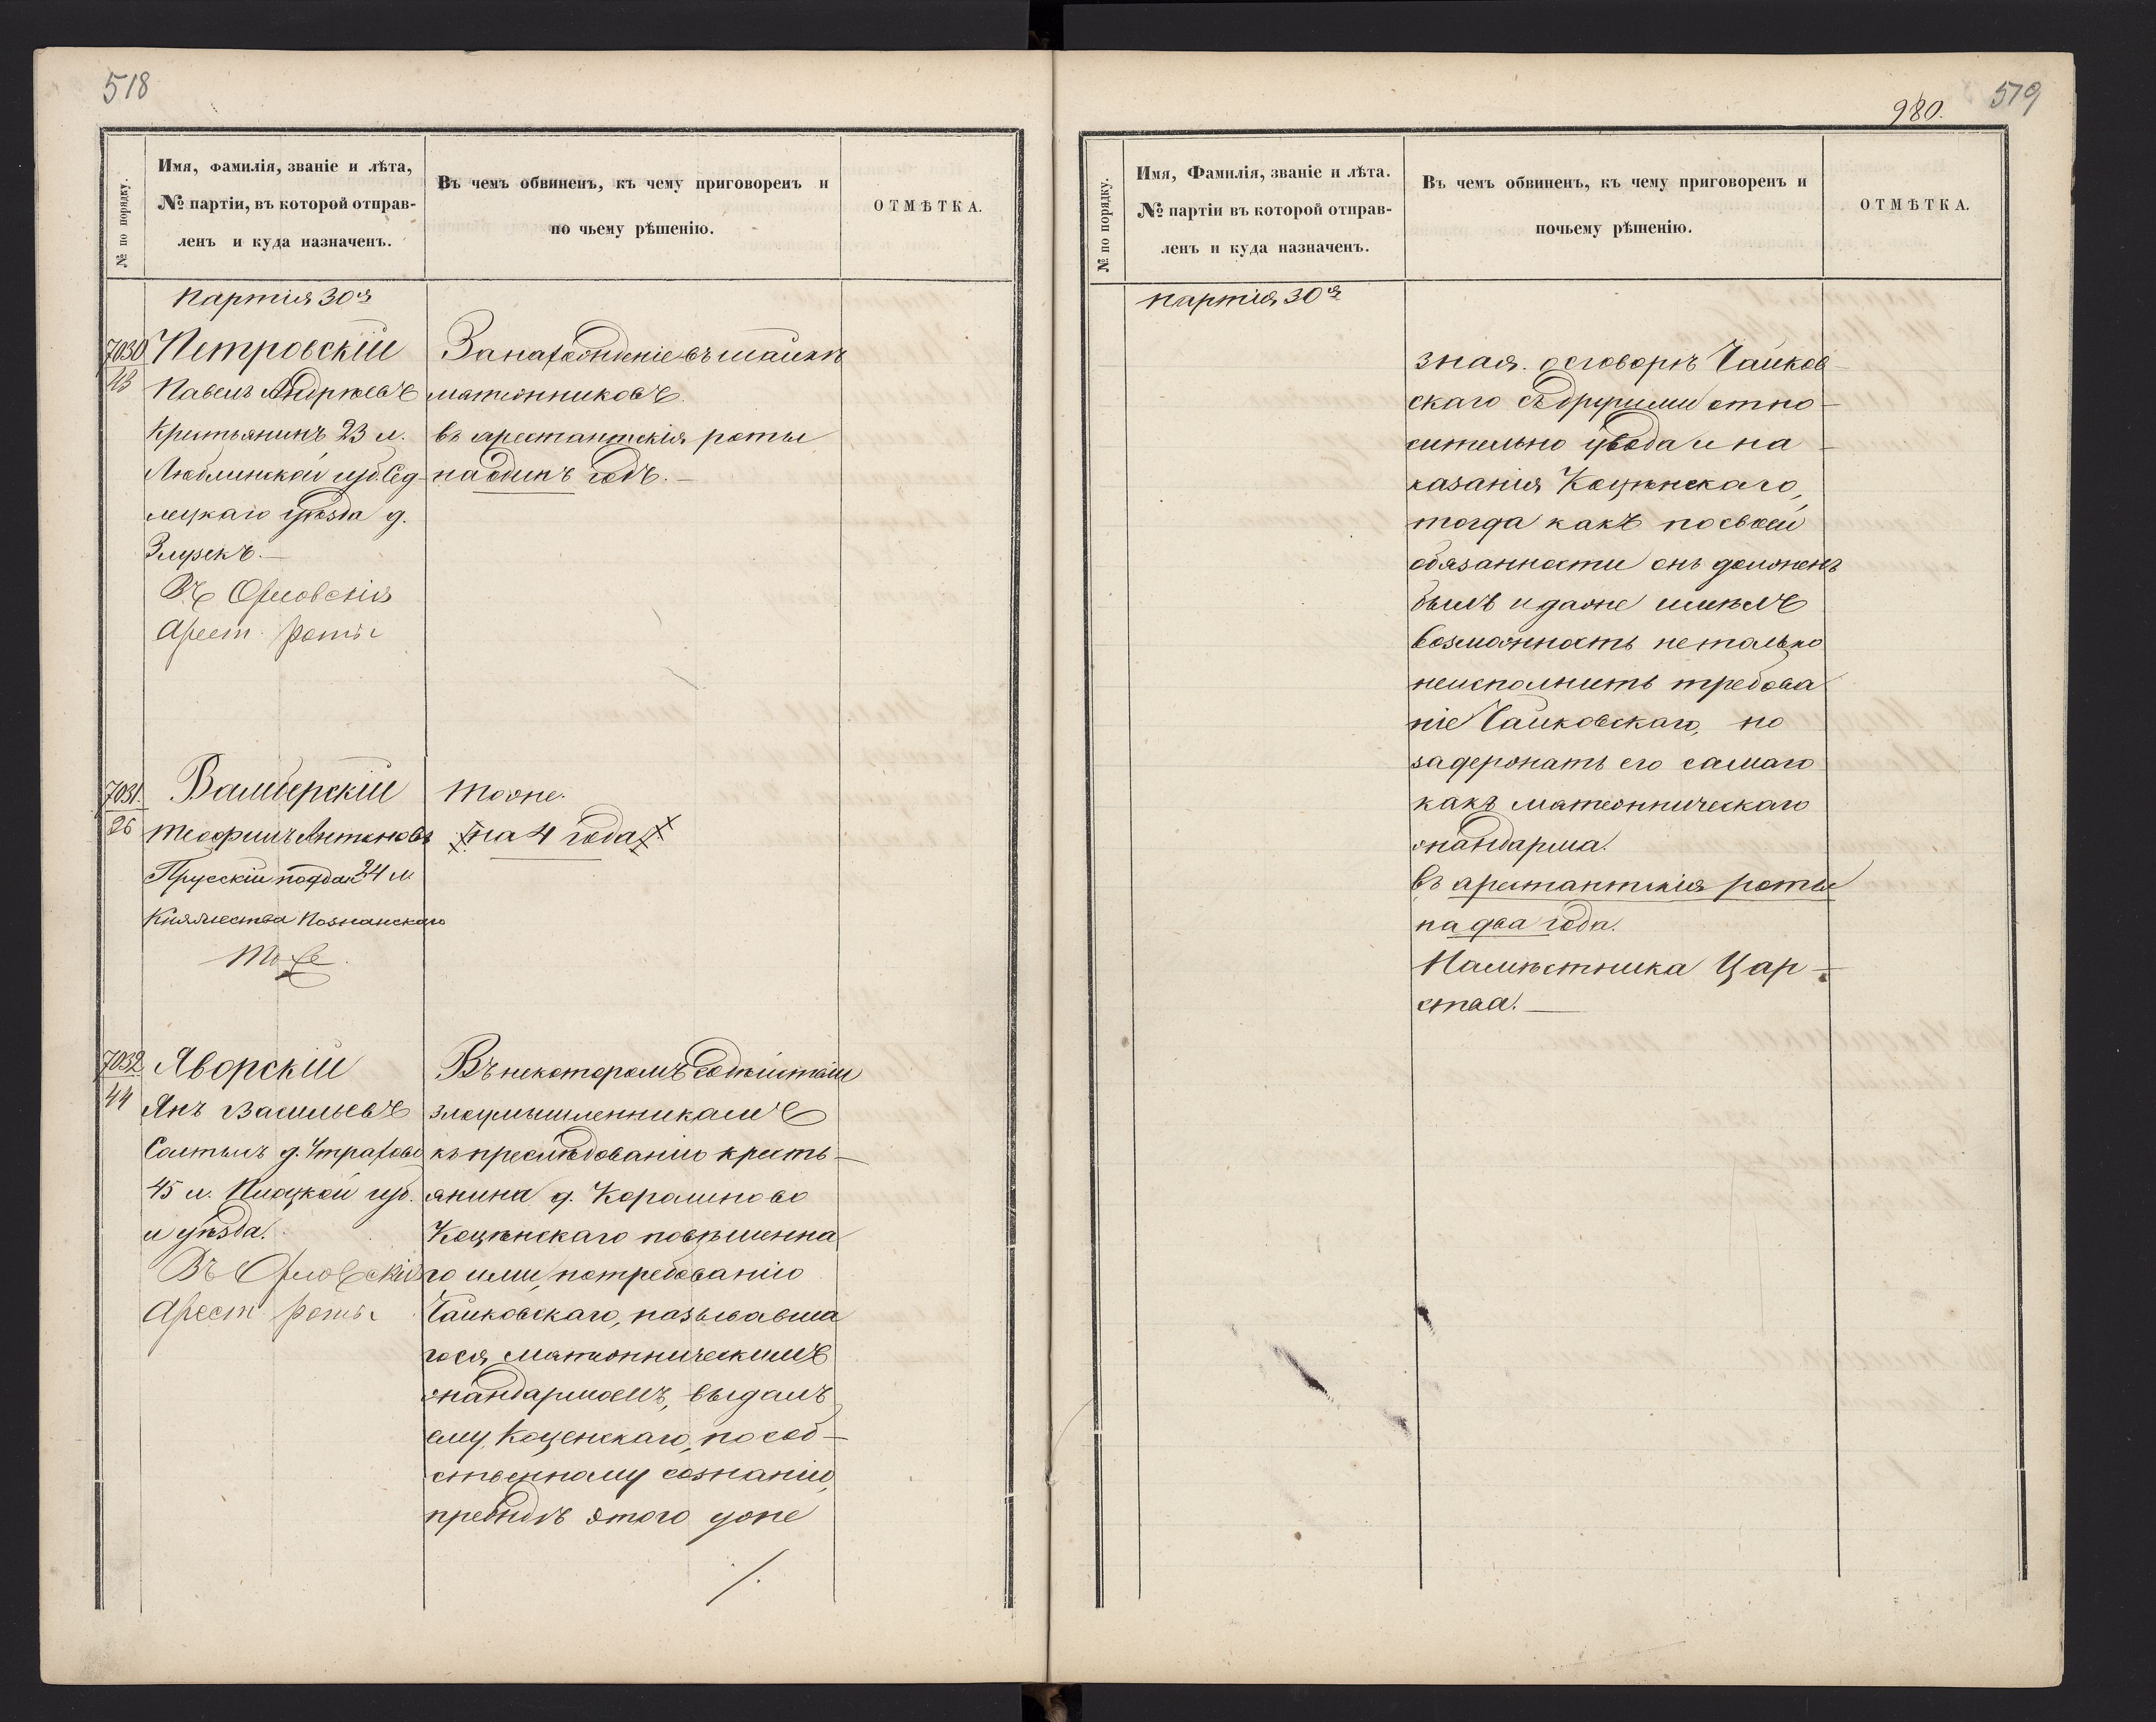 518
№ по порядку.
Имя, Фамилія, званіе и лѣта,
№ партіи, въ которой отправ-
ленъ и куда назначенъ.
Въ чемъ обвиненъ, къ чему приговоренъ и
по чьему рѣшенію.
ОТМѢТКА.
партія 30я
7030
Петровскій
Павелъ Андреевъ
Крестьянинъ 23 л.
Люблинской губ. Сѣд-
лецкаго уѣзда д.
Въ Орловскія
Арест. роты
За нахожденіе въ шайкѣ
мятежниковъ.
въ арестантскія роты
на одинъ годъ.-
7031.
26
Вамберскій
Теофилъ Антоновъ
Прусскій поддан 24 л
Княжества Познанскаго
То же.
Тоже.
на 4 года
7032
44
Яворскій
Янъ Васильевъ
Солтысъ д.
45 л. Плоцкой губ.
и уѣзда.
Въ Орловскія
Арест роты
Въ некоторомъ содѣйствіи
злоумышленникамъ
къ преслѣдованію кресть-
янина д.
Коцѣнскаго повѣшенна
го ими, потребованію
Чайковскаго, называвша
гося мятежническимъ
жандармомъ, выдалъ
ему Коценскаго, по соб-
ственному сознанію,
прежде этого уже
/.
980.
519
№ по порядку.
Имя, Фамилія, званіе и лѣта.
№ партіи въ которой отправ-
ленъ и куда назначенъ.
Въ чемъ обвиненъ, къ чему приговоренъ и
почьему рѣшенію.
ОТМѢТКА.
партія 30я
зная о сговорѣ Чайков-
скаго съ другими отно-
сительно увода и на-
казанія Коцѣнскаго,
тогда какъ по своей
обязанности онъ долженъ
былъ и даже имѣлъ
возможность не только
неисполнить требова
ніе Чайковскаго, но
задержать его самаго
какъ мятежническаго
жандарма.
въ арестантскія роты
на два года.
Намѣстника Цар-
ства.-